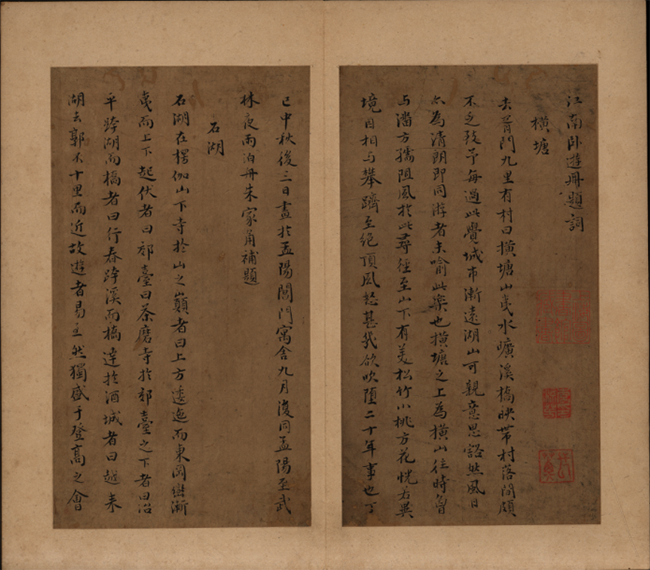 江南卧遊冊題詞
橫塘
去胥門九里有村曰橫塘山夷水曠溪橋映帶村落間頗
不乏致予每過此覺城市漸遠湖山可親意思豁然風日
亦為清朗即同游者未喻此樂也橫塘之上為橫山往時曾
与潘方孺阻風於此尋徑至山下有美松竹小桃方花恍若異
境因相与攀躋至絕頂風怒甚幾欲吹墮二十年事也丁
巳中秋後三日畫於孟陽閶門寓舍九月復同孟陽至武
林夜雨泊舟朱家角補題
石湖
石湖在楞伽山下寺於山之巔者曰上方逶迤而東岡巒漸
夷而上下起伏者曰郊臺曰茶磨寺於郊臺之下者曰治
平跨湖而橋者曰行春跨溪而橋達於酒城者曰越來
湖去郭不十里而近故遊者易至然獨盛于登高之會